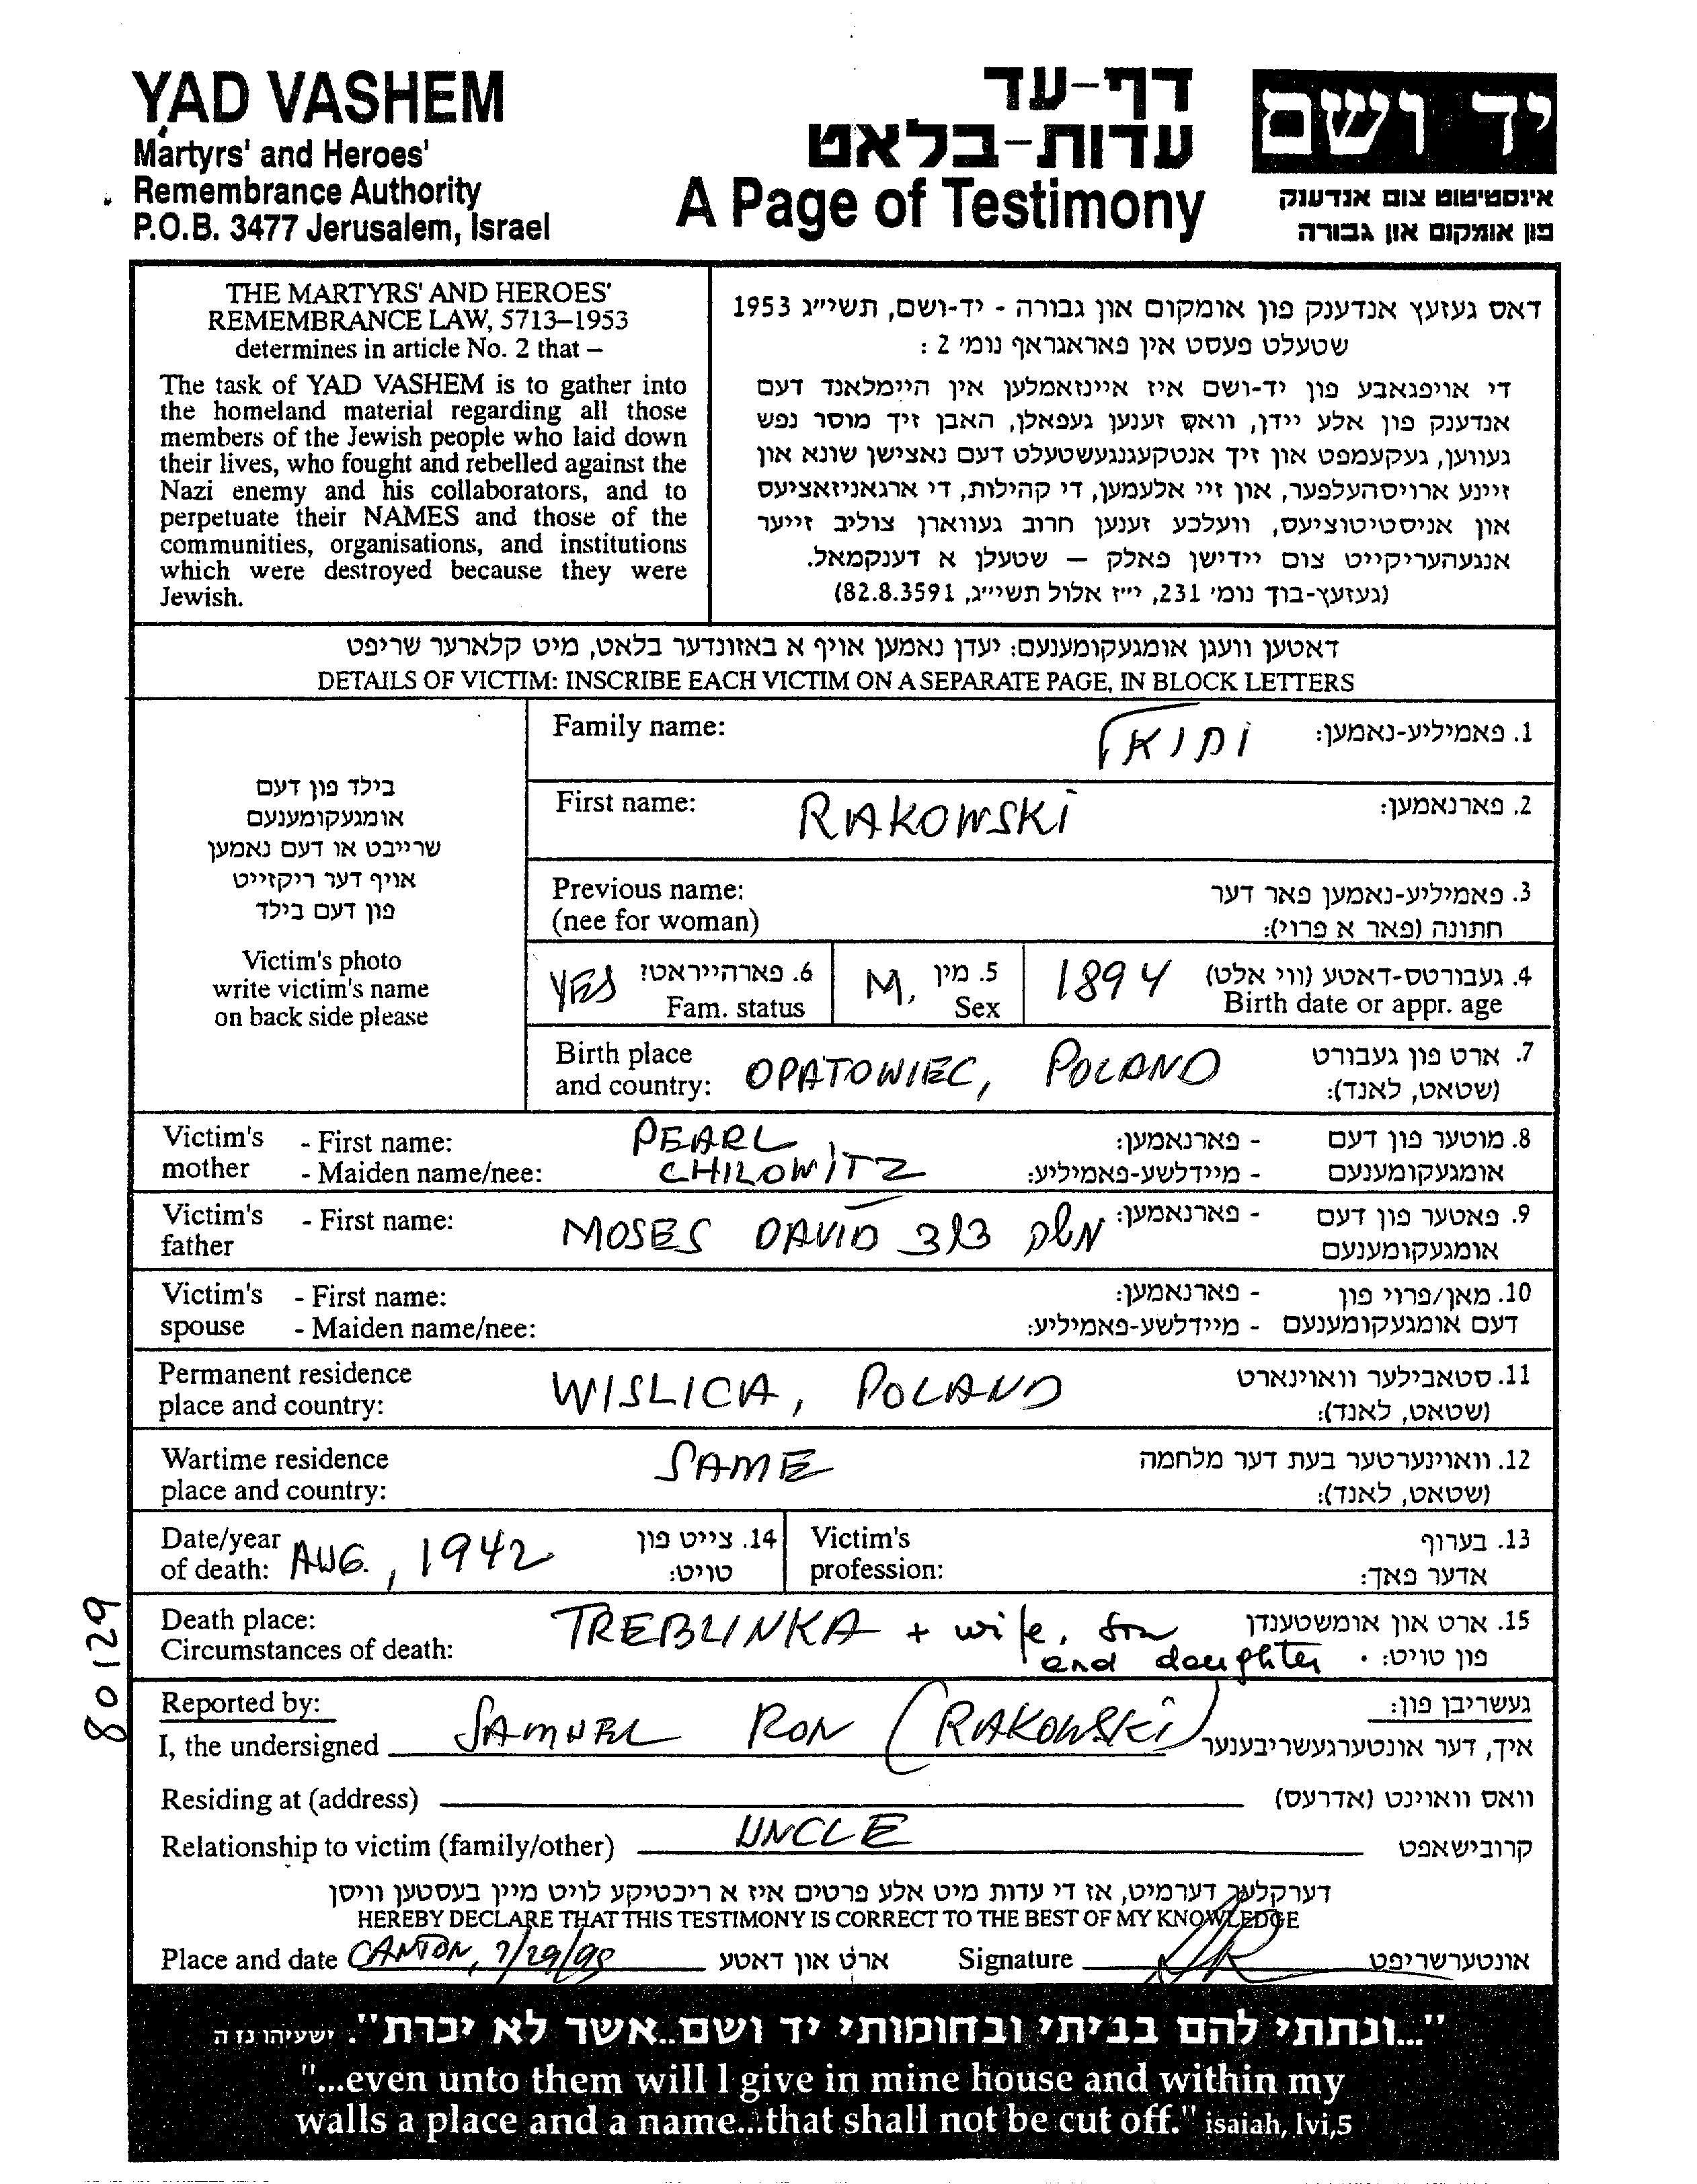 YAD VASHEM
Martyrs' and Heroes'
Remembrance Authority
P.O.B. 3477 Jerusalem, Israel
דף-עד
עדות-בלאט
A Page of Testimony
יד ושם
אינסטיטוט צום אנדענק
פון אומקום און גבורה
THE MARTYRS' AND HEROES'
REMEMBRANCE LAW, 5713–1953
determines in article No. 2 that –
The task of YAD VASHEM is to gather into
the homeland material regarding all those
members of the Jewish people who laid down
their lives, who fought and rebelled against the
Nazi enemy and his collaborators, and to
perpetuate their NAMES and those of the
communities, organisations, and institutions
which were destroyed because they were
Jewish.
דאס געזעץ אנדענק פון אומקום און גבורה - יד-ושם, תשי״ג 1953
שטעלט פעסט אין פאראגראף נומ' 2 :
די אויפגאבע פון יד-ושם איז איינזאמלען אין היימלאנד דעם
אנדענק פון אלע יידן, וואס זענען געפאלן, האבן זיך מוסר נפש
געווען, געקעמפט און זיך אנטקעגנגעשטעלט דעם נאצישן שונא און
זיינע ארויסהעלפער, און זיי אלעמען, די קהילות, די ארגאניזאציעס
און אניסטיטוציעס, וועלכע זענען חרוב געווארן צוליב זייער
אנגעהעריקייט צום יידישן פאלק – שטעלן א דענקמאל.
(געזעץ-בוך נומ' 231, י״ז אלול תשי״ג, 82.8.3591)
דאטען וועגן אומגעקומענעם: יעדן נאמען אויף א באזונדער בלאט, מיט קלארער שריפט
DETAILS OF VICTIM: INSCRIBE EACH VICTIM ON A SEPARATE PAGE, IN BLOCK LETTERS
בילד פון דעם
אומגעקומענעם
שרייבט או דעם נאמען
אויף דער ריקזייט
פון דעם בילד
Victim's photo
write victim's name
on back side please
Family name: 1. פאמיליע-נאמען:
First name: RAKOWSKI 2. פארנאמען:
Previous name: 3. פאמיליע-נאמען פאר דער
(nee for woman) חתונה (פאר א פרוי):
YES 6. פארהייראט? M. 5. מין 1894 4. געבורטס-דאטע (ווי אלט)
Fam. status Sex Birth date or appr. age
Birth place OPATOWIEC, POLAND 7. ארט פון געבורט
and country: (שטאט, לאנד):
Victim's - First name: PEARL - פארנאמען: 8. מוטער פון דעם
mother - Maiden name/nee: CHILOWITZ - מיידלשע-פאמיליע: אומגעקומענעם
Victim's - First name: MOSES DAVID משה דוד - פארנאמען: 9. פאטער פון דעם
father אומגעקומענעם
Victim's - First name: - פארנאמען: 10. מאן/פרוי פון
spouse - Maiden name/nee: - מיידלשע-פאמיליע: דעם אומגעקומענעם
Permanent residence WISLICA, POLAND 11. סטאבילער וואוינארט
place and country: (שטאט, לאנד):
Wartime residence SAME 12. וואוינערטער בעת דער מלחמה
place and country: (שטאט, לאנד):
Date/year AUG., 1942 14. צייט פון Victim's 13. בערוף
of death: טויט: profession: אדער פאך:
Death place: TREBLINKA + wife, son 15. ארט און אומשטענדן
Circumstances of death: and daughter פון טויט:
80129
Reported by: געשריבן פון:
I, the undersigned SAMUEL RON (RAKOWSKI) איך, דער אונטערגעשריבענער
Residing at (address) וואס וואוינט (אדרעס)
Relationship to victim (family/other) UNCLE קרובישאפט
דערקלער דערמיט, אז די עדות מיט אלע פרטים איז א ריכטיקע לויט מיין בעסטען וויסן
HEREBY DECLARE THAT THIS TESTIMONY IS CORRECT TO THE BEST OF MY KNOWLEDGE
Place and date CANTON, ארט און דאטע Signature אונטערשריפט
"...ונתתי להם בביתי ובחומותי יד ושם..אשר לא יכרת". ישעיהו נז ה
"...even unto them will I give in mine house and within my
walls a place and a name...that shall not be cut off." isaiah, lvi,5